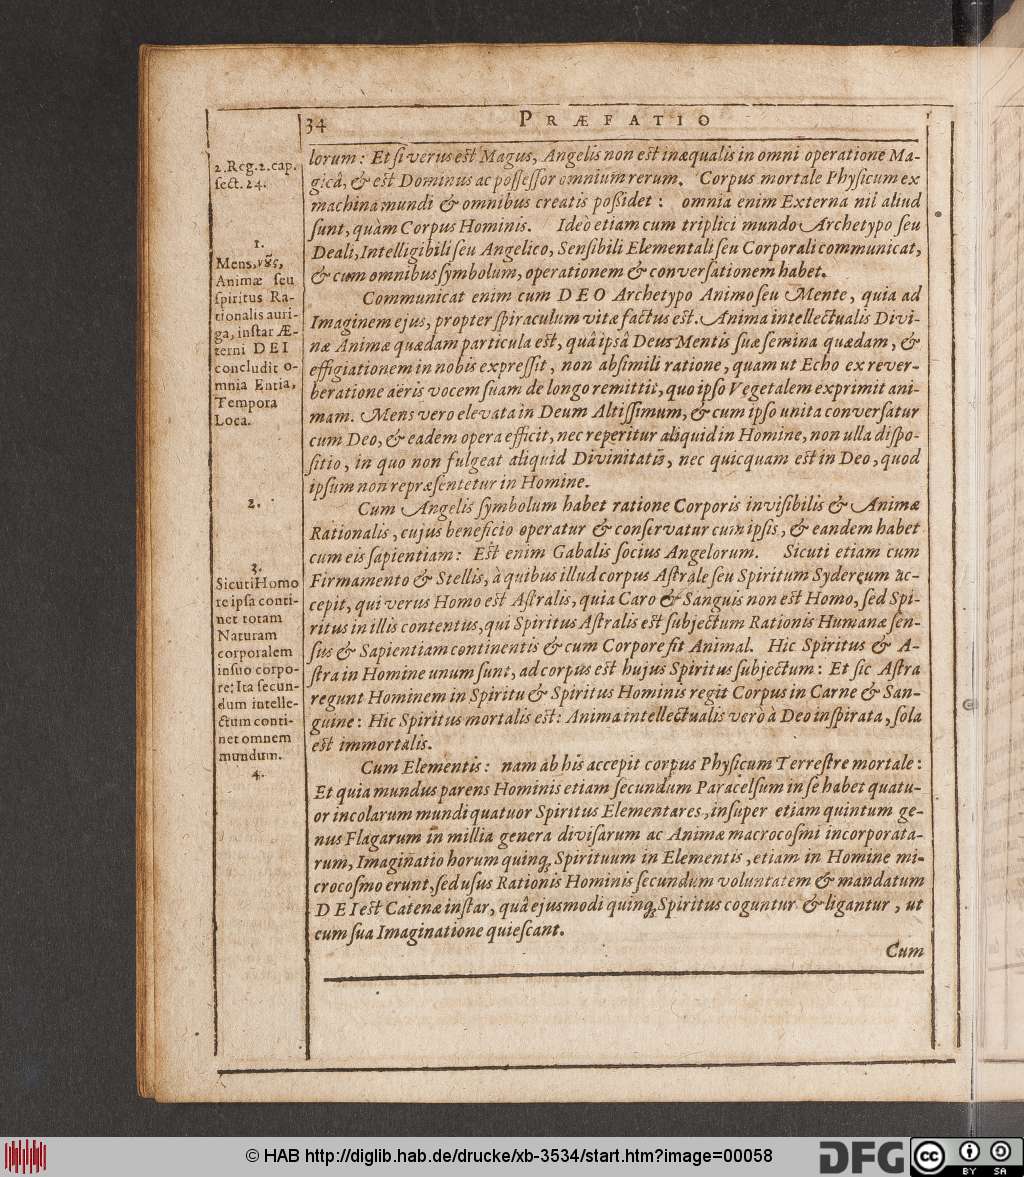 34
PRÆFATIO
2. Reg. 2. cap.
sect. 24.
1.
Mens, νῦς,
Animæ seu
spiritus Ra-
tionalis auri-
ga, instar Æ-
terni DEI
concludit o-
mnia Entia,
Tempora
Loca.
2.
3.
Sicuti Homo
re ipsa conti-
net totam
Naturam
corporalem
in suo corpo-
re; Ita secun-
dum intelle-
ctum conti-
net omnem
mundum.
4.
lorum: Et si verus est Magus, Angelis non est inæqualis in omni operatione Ma-
gicâ, & est Dominus ac possessor omnium rerum. Corpus mortale Physicum ex
machina mundi & omnibus creatis possidet: omnia enim Externa nil aliud
sunt, quàm Corpus Hominis. Ideò etiam cum triplici mundo Archetypo seu
Deali, Intelligibili seu Angelico, Sensibili Elementali seu Corporali communicat,
& cum omnibus symbolum, operationem & conversationem habet.
Communicat enim cum DEO Archetypo Animo seu Mente, quia ad
Imaginem ejus, propter spiraculum vitæ factus est. Anima intellectualis Divi-
næ Animæ quædam particula est, quâ ipsâ Deus Mentis suæ semina quædam, &
effigiationem in nobis expressit, non absimili ratione, quam ut Echo ex rever-
beratione aëris vocem suam de longo remittit, quo ipso Vegetalem exprimit ani-
mam. Mens vero elevata in Deum Altissimum, & cum ipso unita conversatur
cum Deo, & eadem opera efficit, nec reperitur aliquid in Homine, non ulla dispo-
sitio, in quo non fulgeat aliquid Divinitatis, nec quicquam est in Deo, quod
ipsum non repræsentetur in Homine.
Cum Angelis symbolum habet ratione Corporis invisibilis & Animæ
Rationalis, cujus beneficio operatur & conservatur cum ipsis, & eandem habet
cum eis sapientiam: Est enim Gabalis socius Angelorum. Sicuti etiam cum
Firmamento & Stellis, à quibus illud corpus Astrale seu Spiritum Sydereum ac-
cepit, qui verus Homo est Astralis, quia Caro & Sanguis non est Homo, sed Spi-
ritus in illis contentus, qui Spiritus Astralis est subjectum Rationis Humanæ sen-
sus & Sapientiam continentis & cum Corpore fit Animal. Hic Spiritus & A-
stra in Homine unum sunt, ad corpus est hujus Spiritus subjectum: Et sic Astra
regunt Hominem in Spiritu & Spiritus Hominis regit Corpus in Carne & San-
guine: Hic Spiritus mortalis est: Anima intellectualis verò à Deo inspirata, sola
est immortalis.
Cum Elementis: nam ab his accepit corpus Physicum Terrestre mortale:
Et quia mundus parens Hominis etiam secundum Paracelsum in se habet quatu-
or incolarum mundi quatuor Spiritus Elementares, insuper etiam quintum ge-
nus Flagarum in millia genera divisarum ac Animæ macrocosmi incorporata-
rum, Imaginatio horum quinq; Spirituum in Elementis, etiam in Homine mi-
crocosmo erunt, sed usus Rationis Hominis secundum voluntatem & mandatum
DEI est Catenæ instar, quâ ejusmodi quinq; Spiritus coguntur & ligantur, ut
cum sua Imaginatione quiescant.
Cum
© HAB http://diglib.hab.de/drucke/xb-3534/start.htm?image=00058
DFG
cc
BY SA